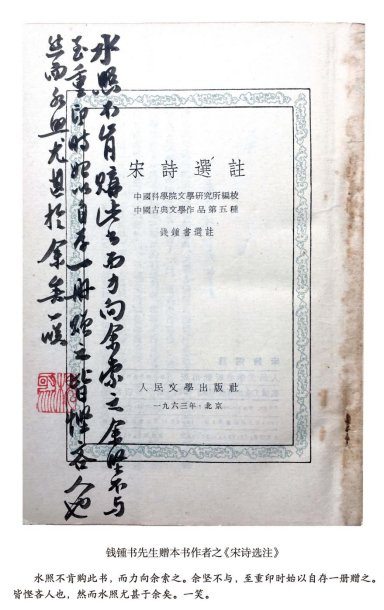 水照不肯購此書而力向余索之余堅不与
至重印時始以自存一册贈之皆慳吝人也
然而水照尤甚於余矣一咲
宋詩選註
中國科學院文學研究所編校
中國古典文學作品第五種
錢鍾書選註
人民文學出版社
一九六三年·北京
钱锺书先生赠本书作者之《宋诗选注》
水照不肯购此书，而力向余索之。余坚不与，至重印时始以自存一册赠之。
皆悭吝人也，然而水照尤甚于余矣。一笑。